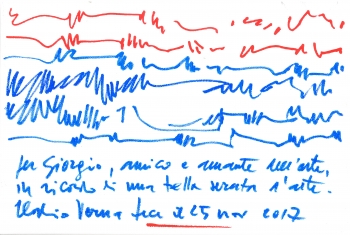 per Giorgio, amico e amante dell'arte,
in ricordo di una bella serata d'arte.
Verna fece il 25 nov 2017